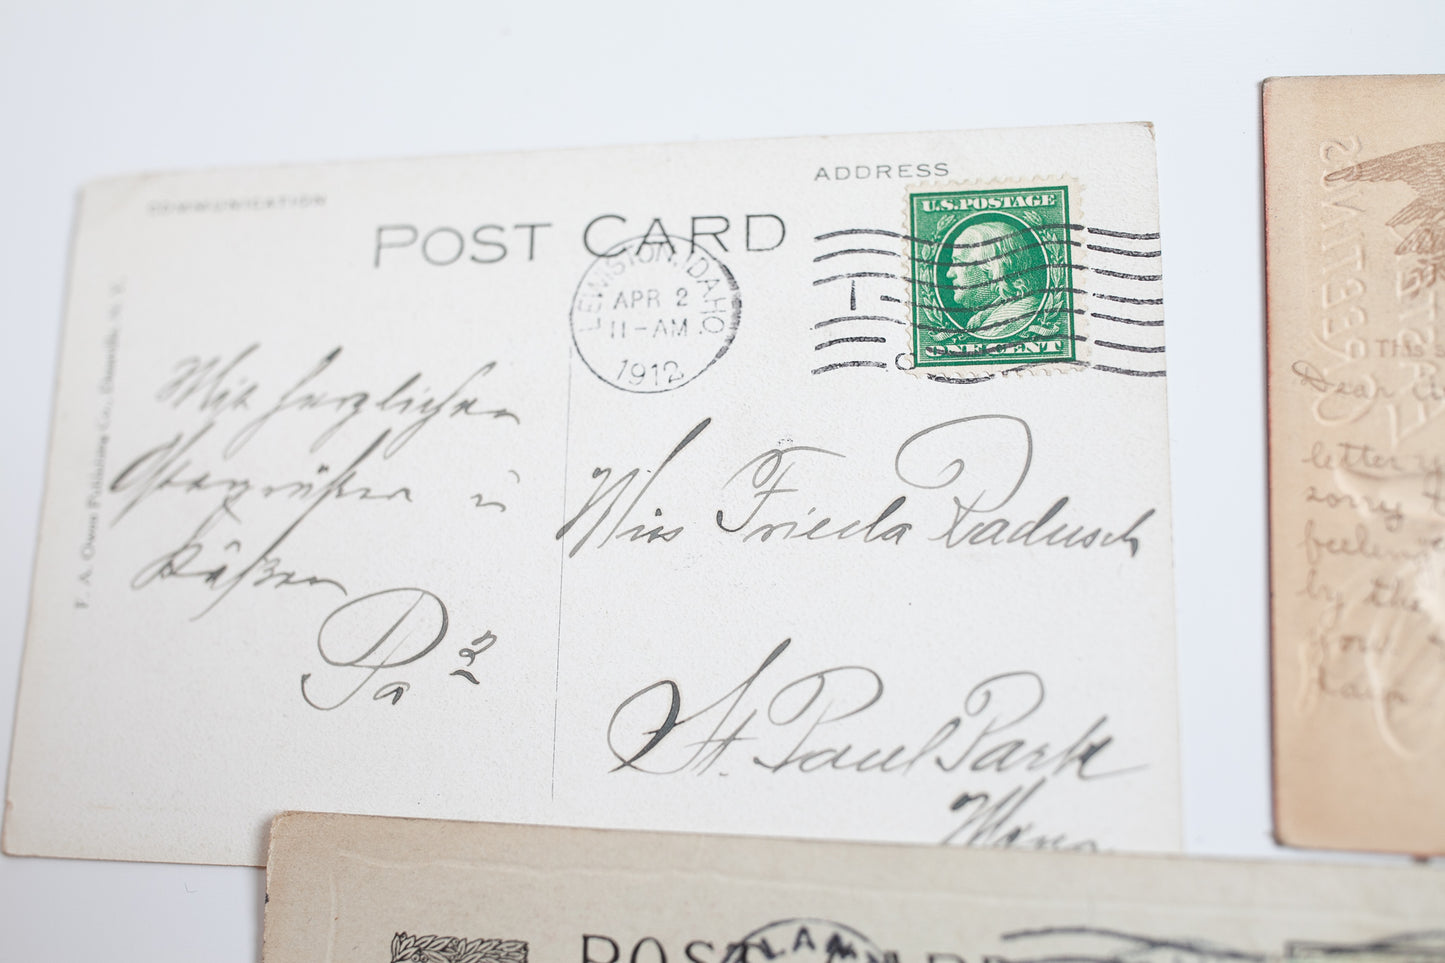 COMMUNICATION
POST CARD
ADDRESS
U.S. POSTAGE
ONE CENT
LEWISTON, IDAHO
APR 2
11-AM
1912
1
F. A. Owen Publishing Co., Dansville, N. Y.
Mit herzlichen
Ostergrüßen u
Küßen
Pa
Miss Frieda Radusch
St. Paul Park
Minn
This s
Dear
letter
sorry
by the
you
POST